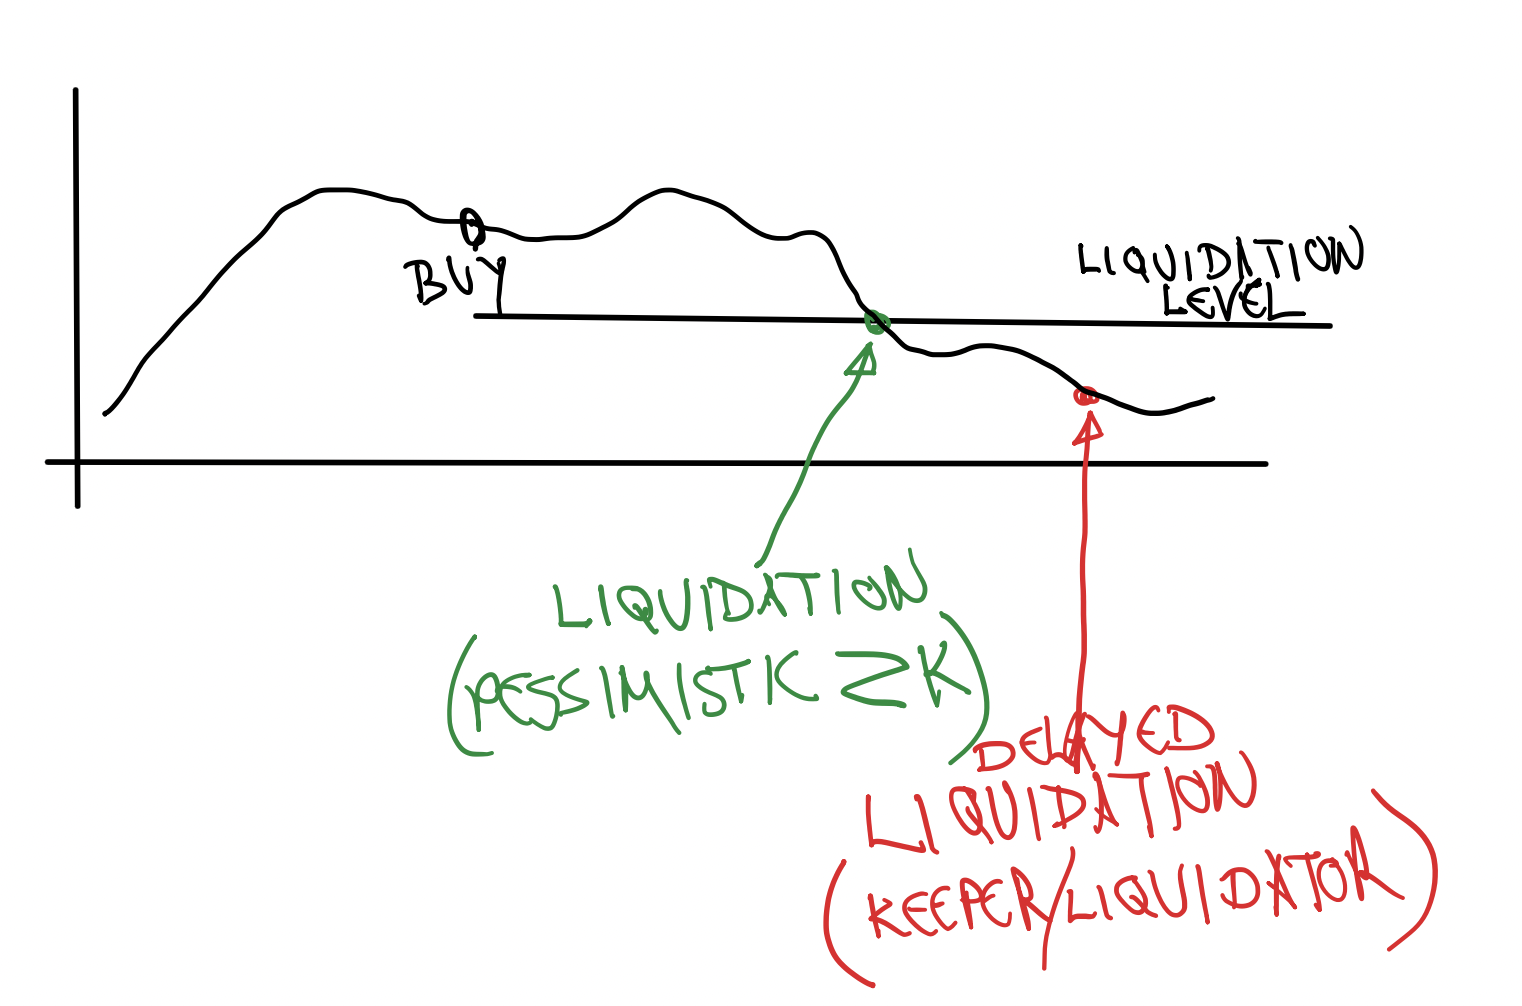 BUY
LIQUIDATION
LEVEL
LIQUIDATION
(PESSIMISTIC ZK)
DELAYED
LIQUIDATION
(KEEPER/LIQUIDATOR)